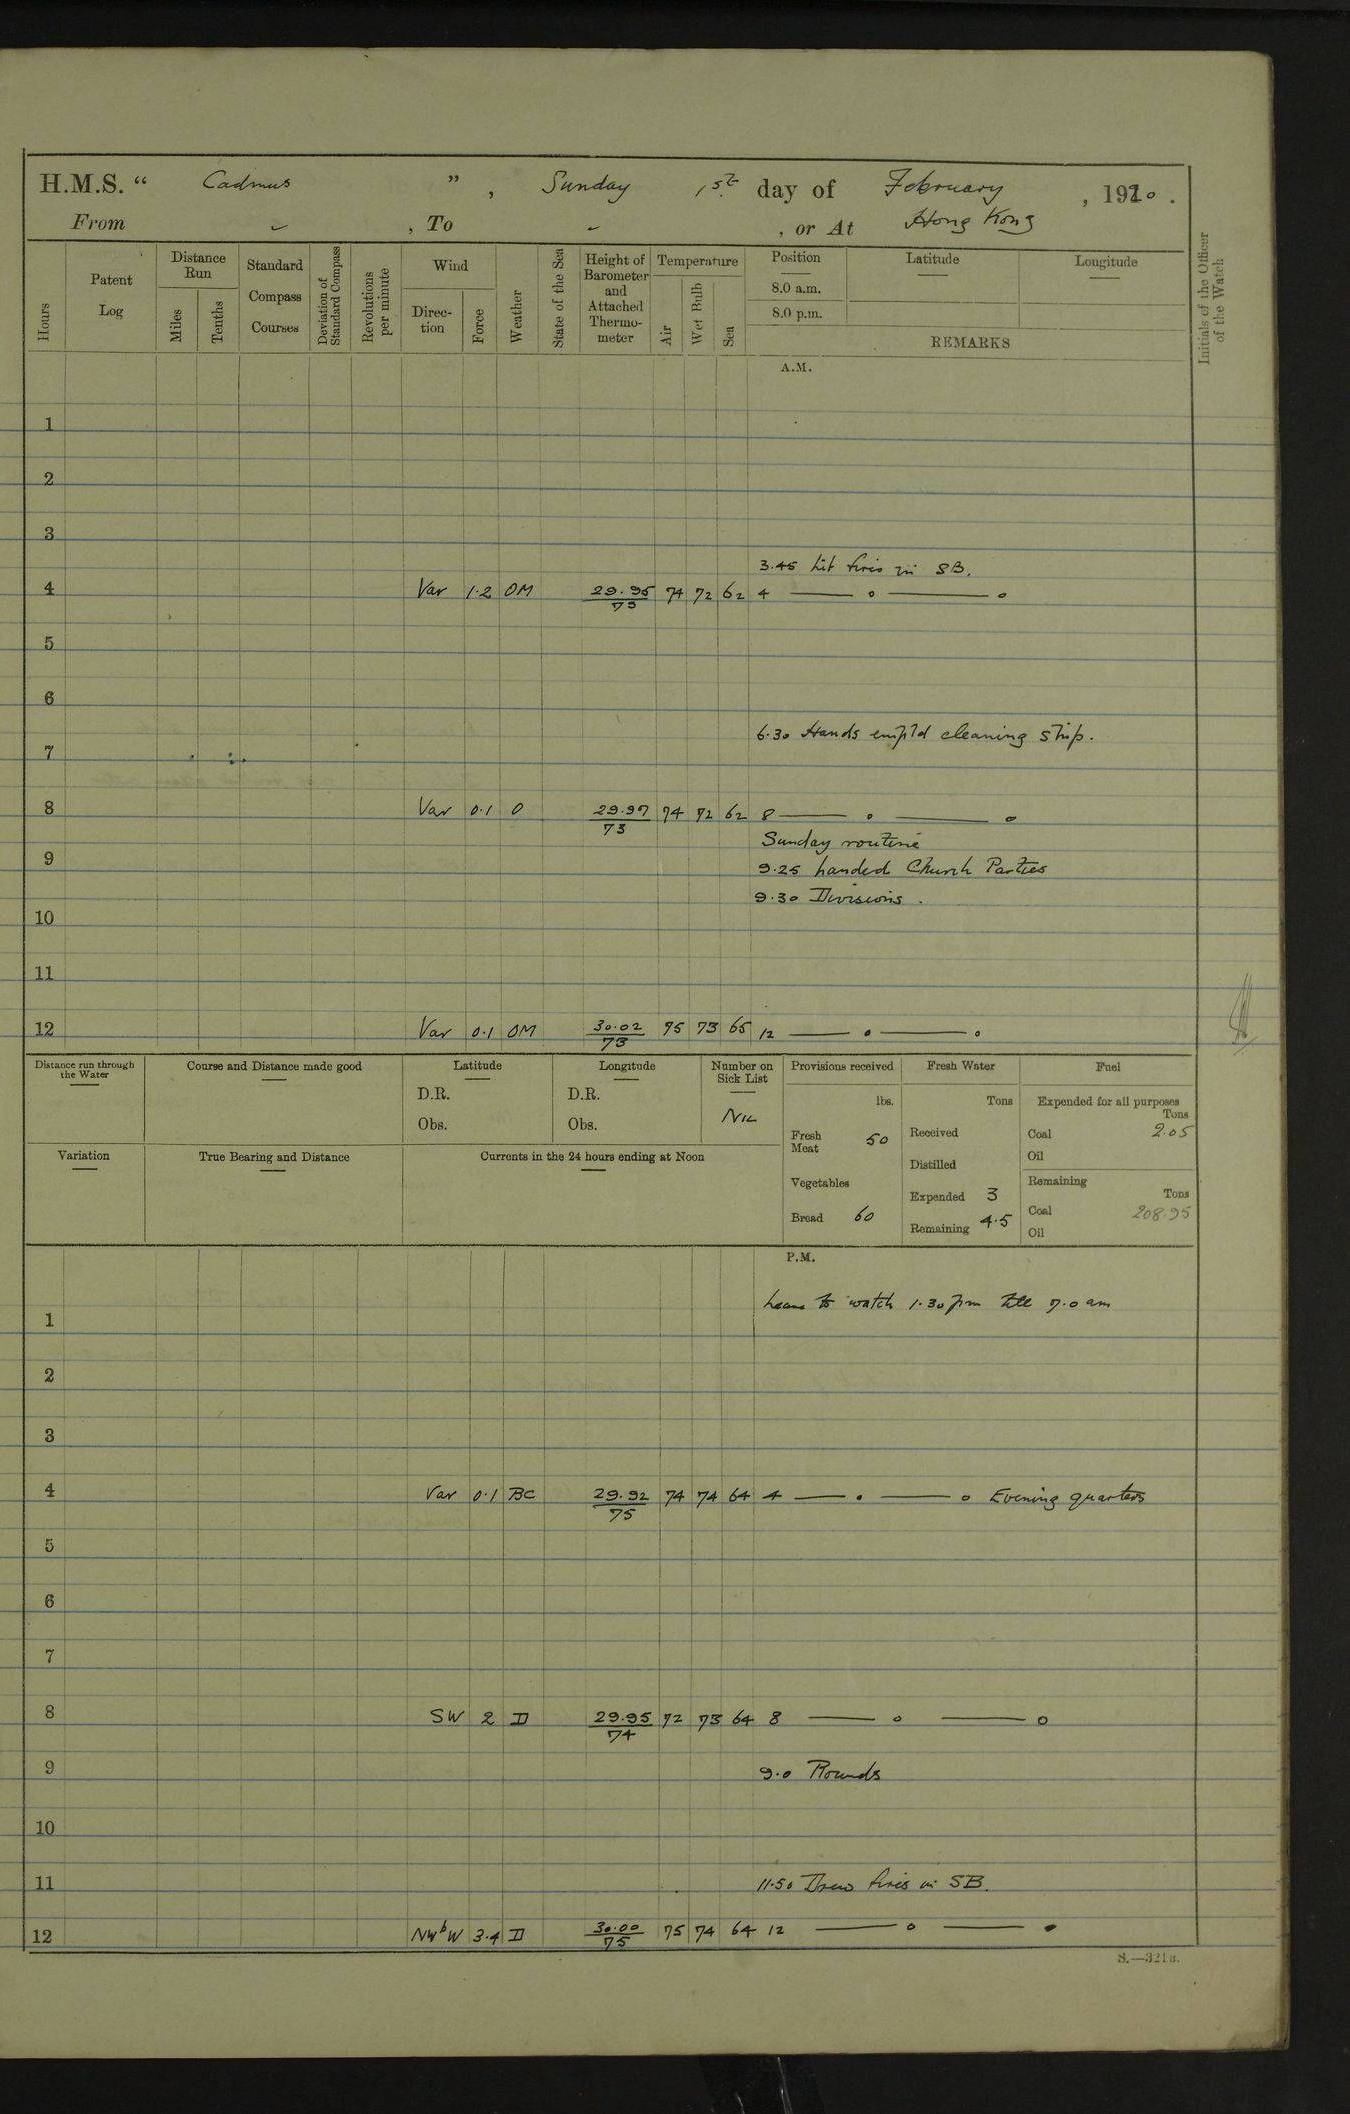 H.M.S. “ Cadmus ” , Sunday 1st day of February , 1920 .
From , To , or At Hong Kong
Hours
Patent Log
Distance Run
Miles
Tenths
Standard Compass Courses
Deviation of Standard Compass
Revolutions per minute
Wind
Direc-tion
Force
Weather
State of the Sea
Height of Barometer and Attached Thermo-meter
Temperature
Air
Wet Bulb
Sea
Position
8.0 a.m.
8.0 p.m.
Latitude
Longitude
REMARKS
Initials of the Officer of the Watch
A.M.
1
2
3
3.45 Lit fires in SB.
4 Var 1.2 OM 29.95 74 72 62 4
73
5
6
6.30 Hands emp'ld cleaning ship.
7
8 Var 0.1 O 29.97 74 72 62 8
73
Sunday routine
9
9.25 Landed Church Parties
9.30 Divisions .
10
11
12 Var 0.1 OM 30.02 75 73 65 12
73
Distance run through the Water
Course and Distance made good
Latitude
D.R.
Obs.
Longitude
D.R.
Obs.
Number on Sick List
Nil
Provisions received
lbs.
Fresh Meat 50
Vegetables
Bread 60
Fresh Water
Tons
Received
Distilled
Expended 3
Remaining 4.5
Fuel
Expended for all purposes
Tons
Coal 2.05
Oil
Remaining
Tons
Coal 208.95
Oil
Variation
True Bearing and Distance
Currents in the 24 hours ending at Noon
P.M.
Leave to watch 1.30 pm till 7.0 am
1
2
3
4 Var 0.1 BC 29.92 74 74 64 4 Evening quarters
75
5
6
7
8 SW 2 D 29.95 72 73 64 8
74
9 9.0 Rounds
10
11 11.50 Drew fires in SB.
12 NWbW 3.4 D 30.00 75 74 64 12
75
S.—321a.